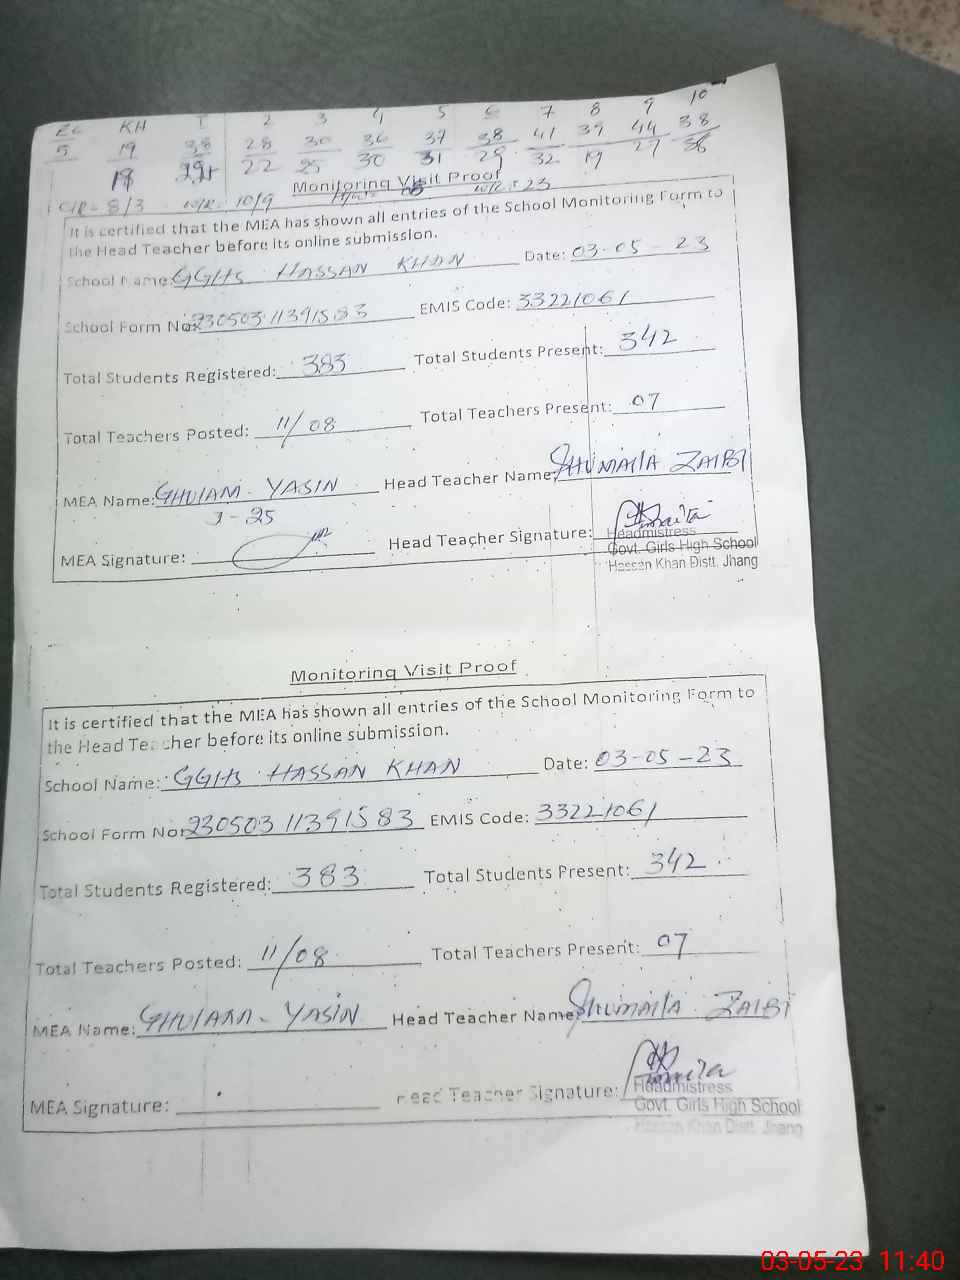 KH 1 2 3 4 5 6 7 8 9 10
5 19 38 28 30 36 37 38 41 39 44 38
22 25 30 31 29 32 19 27 36
Monitoring Visit Proof
8/3 10/9 23
It is certified that the MEA has shown all entries of the School Monitoring Form to
the Head Teacher before its online submission.
School Name: GGHS HASSAN KHAN Date: 03-05-23
School Form No: 23050311391583 EMIS Code: 33221061
Total Students Registered: 383 Total Students Present: 342
Total Teachers Posted: 11/08 Total Teachers Present: 07
MEA Name: GHULAM YASIN Head Teacher Name: SHUMAILA ZAIBI
J-25
MEA Signature: Head Teacher Signature:
Headmistress
Govt. Girls High School
Hassan Khan Distt. Jhang
Monitoring Visit Proof
It is certified that the MEA has shown all entries of the School Monitoring Form to
the Head Teacher before its online submission.
School Name: GGHS HASSAN KHAN Date: 03-05-23
School Form No: 23050311391583 EMIS Code: 33221061
Total Students Registered: 383 Total Students Present: 342
Total Teachers Posted: 11/08 Total Teachers Present: 07
MEA Name: GHULAM YASIN Head Teacher Name: SHUMAILA ZAIBI
MEA Signature: Head Teacher Signature:
Headmistress
Govt. Girls High School
Hassan Khan Distt. Jhang
03-05-23 11:40